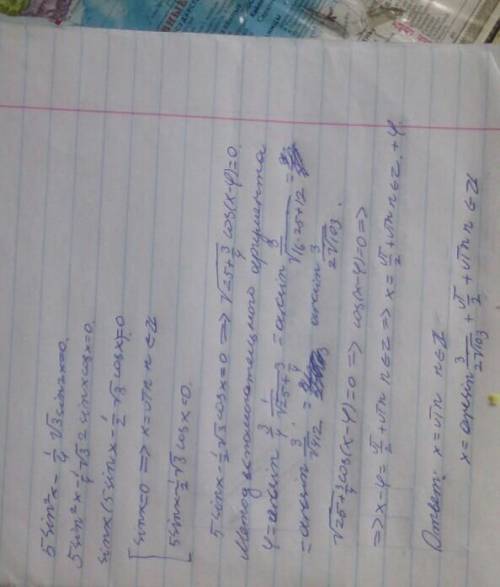 5sin²x - 1/4 √3 sin2x=0.
5sin²x - 1/4 √3 2sinxcosx=0.
sinx(5sinx - 1/2 √3 cosx)=0
[ sinx=0 => x=πn n∈Z
5sinx - 1/2 √3 cosx=0.
5sinx - 1/2 √3 cosx=0 => √25+3/4 cos(x-φ)=0.
Метод вспомогательного аргумента
φ=arcsin 3/4 · 1/√25+3/4 = arcsin 3/√16·25+12 =
= arcsin 3/√412 = arcsin 3/2√103.
√25+3/4 cos(x-φ)=0 => cos(x-φ)=0 =>
=> x-φ= π/2 +πn n∈Z => x= π/2 +πn n∈Z. +φ
Ответ: x=πn n∈Z
x=arcsin 3/2√103 + π/2 +πn n∈Z